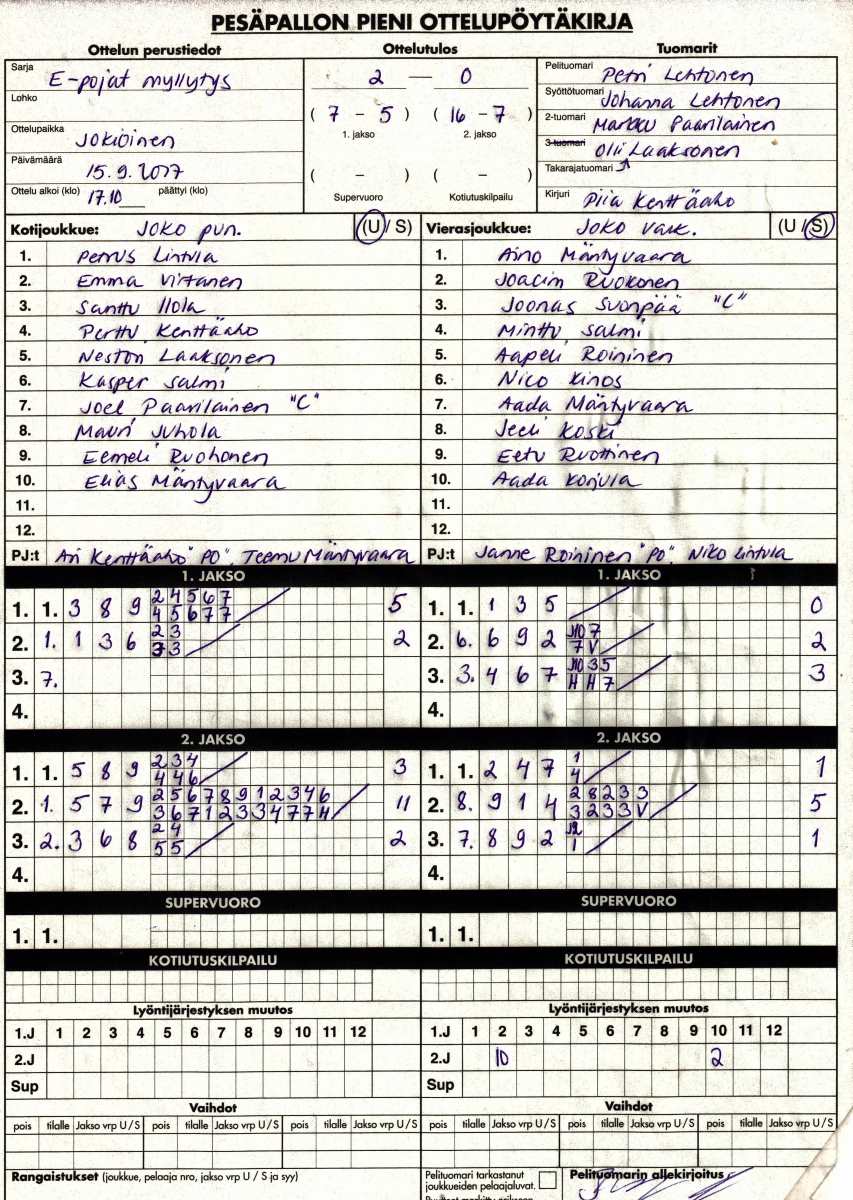 PESÄPALLON PIENI OTTELUPÖYTÄKIRJA
Ottelun perustiedot Ottelutulos Tuomarit
Sarja E-pojat myllytys
Lohko
Ottelupaikka Jokioinen
Päivämäärä 15.9.2017
Ottelu alkoi (klo) 17.10 päättyi (klo)
2 — 0
( 7 – 5 ) ( 16 – 7 )
1. jakso 2. jakso
( – ) ( – )
Supervuoro Kotiutuskilpailu
Pelituomari Petri Lehtonen
Syöttötuomari Johanna Lehtonen
2-tuomari Markku Paarilainen
3-tuomari Olli Laaksonen
Takarajatuomari
Kirjuri Piia Kenttäaho
Kotijoukkue: JOKO pun. (U / S)
1. Petrus Lintula
2. Emma Virtanen
3. Santtu Ilola
4. Perttu Kenttäaho
5. Neston Laaksonen
6. Kasper Salmi
7. Joel Paarilainen "C"
8. Mauri Juhola
9. Eemeli Ruohonen
10. Elias Mäntyvaara
11.
12.
PJ:t Ari Kenttäaho "PO", Teemu Mäntyvaara
Vierasjoukkue: JOKO valk. (U / S)
1. Aino Mäntyvaara
2. Joacim Ruokonen
3. Joonas Suonpää "C"
4. Minttu Salmi
5. Aapeli Roininen
6. Nico Kinos
7. Aada Mäntyvaara
8. Jeeli Koski
9. Eetu Ruottinen
10. Aada Korjula
11.
12.
PJ:t Janne Roininen "PO", Niko Lintula
1. JAKSO
1. 1. 3 8 9 2 4 5 6 7 5
4 5 6 7 7
2. 1. 1 3 6 2 3 2
3 3
3. 7.
4.
1. JAKSO
1. 1. 1 3 5 0
2. 6. 6 9 2 7 2
7 V
3. 3. 4 6 7 3 5 3
H H 7
4.
2. JAKSO
1. 1. 5 8 9 2 3 4 3
4 4 6
2. 1. 5 7 9 2 5 6 7 8 9 1 2 3 4 6 11
3 6 7 1 2 3 3 4 7 7 H
3. 2. 3 6 8 2 4 2
5 5
4.
2. JAKSO
1. 1. 2 4 7 1 1
4
2. 8. 9 1 4 2 8 2 3 3 5
3 2 3 3 V
3. 7. 8 9 2 1
1
4.
SUPERVUORO SUPERVUORO
1. 1. 1. 1.
KOTIUTUSKILPAILU KOTIUTUSKILPAILU
Lyöntijärjestyksen muutos
1.J 1 2 3 4 5 6 7 8 9 10 11 12
2.J
Sup
Lyöntijärjestyksen muutos
1.J 1 2 3 4 5 6 7 8 9 10 11 12
2.J 10 2
Sup
Vaihdot Vaihdot
pois tilalle Jakso vrp U / S pois tilalle Jakso vrp U / S pois tilalle Jakso vrp U / S
pois tilalle Jakso vrp U / S pois tilalle Jakso vrp U / S pois tilalle Jakso vrp U / S
Rangaistukset (joukkue, pelaaja nro, jakso vrp U / S ja syy)
Pelituomari tarkastanut
joukkueiden pelaajaluvat.
Pelituomarin allekirjoitus